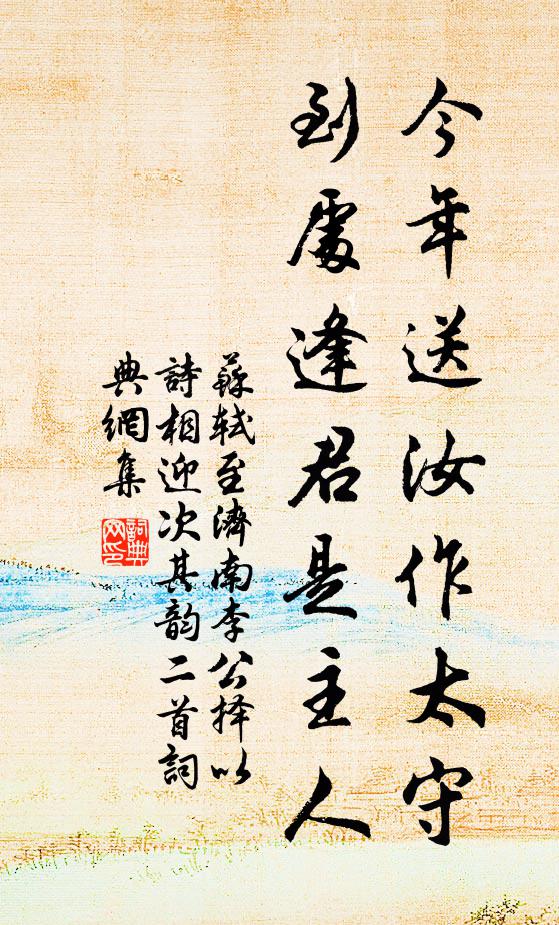 今年送汝作太守
到處逢君是主人
蘇軾至濟南李公择以
詩相迎次其韵二首詞
典網集
詞典网印